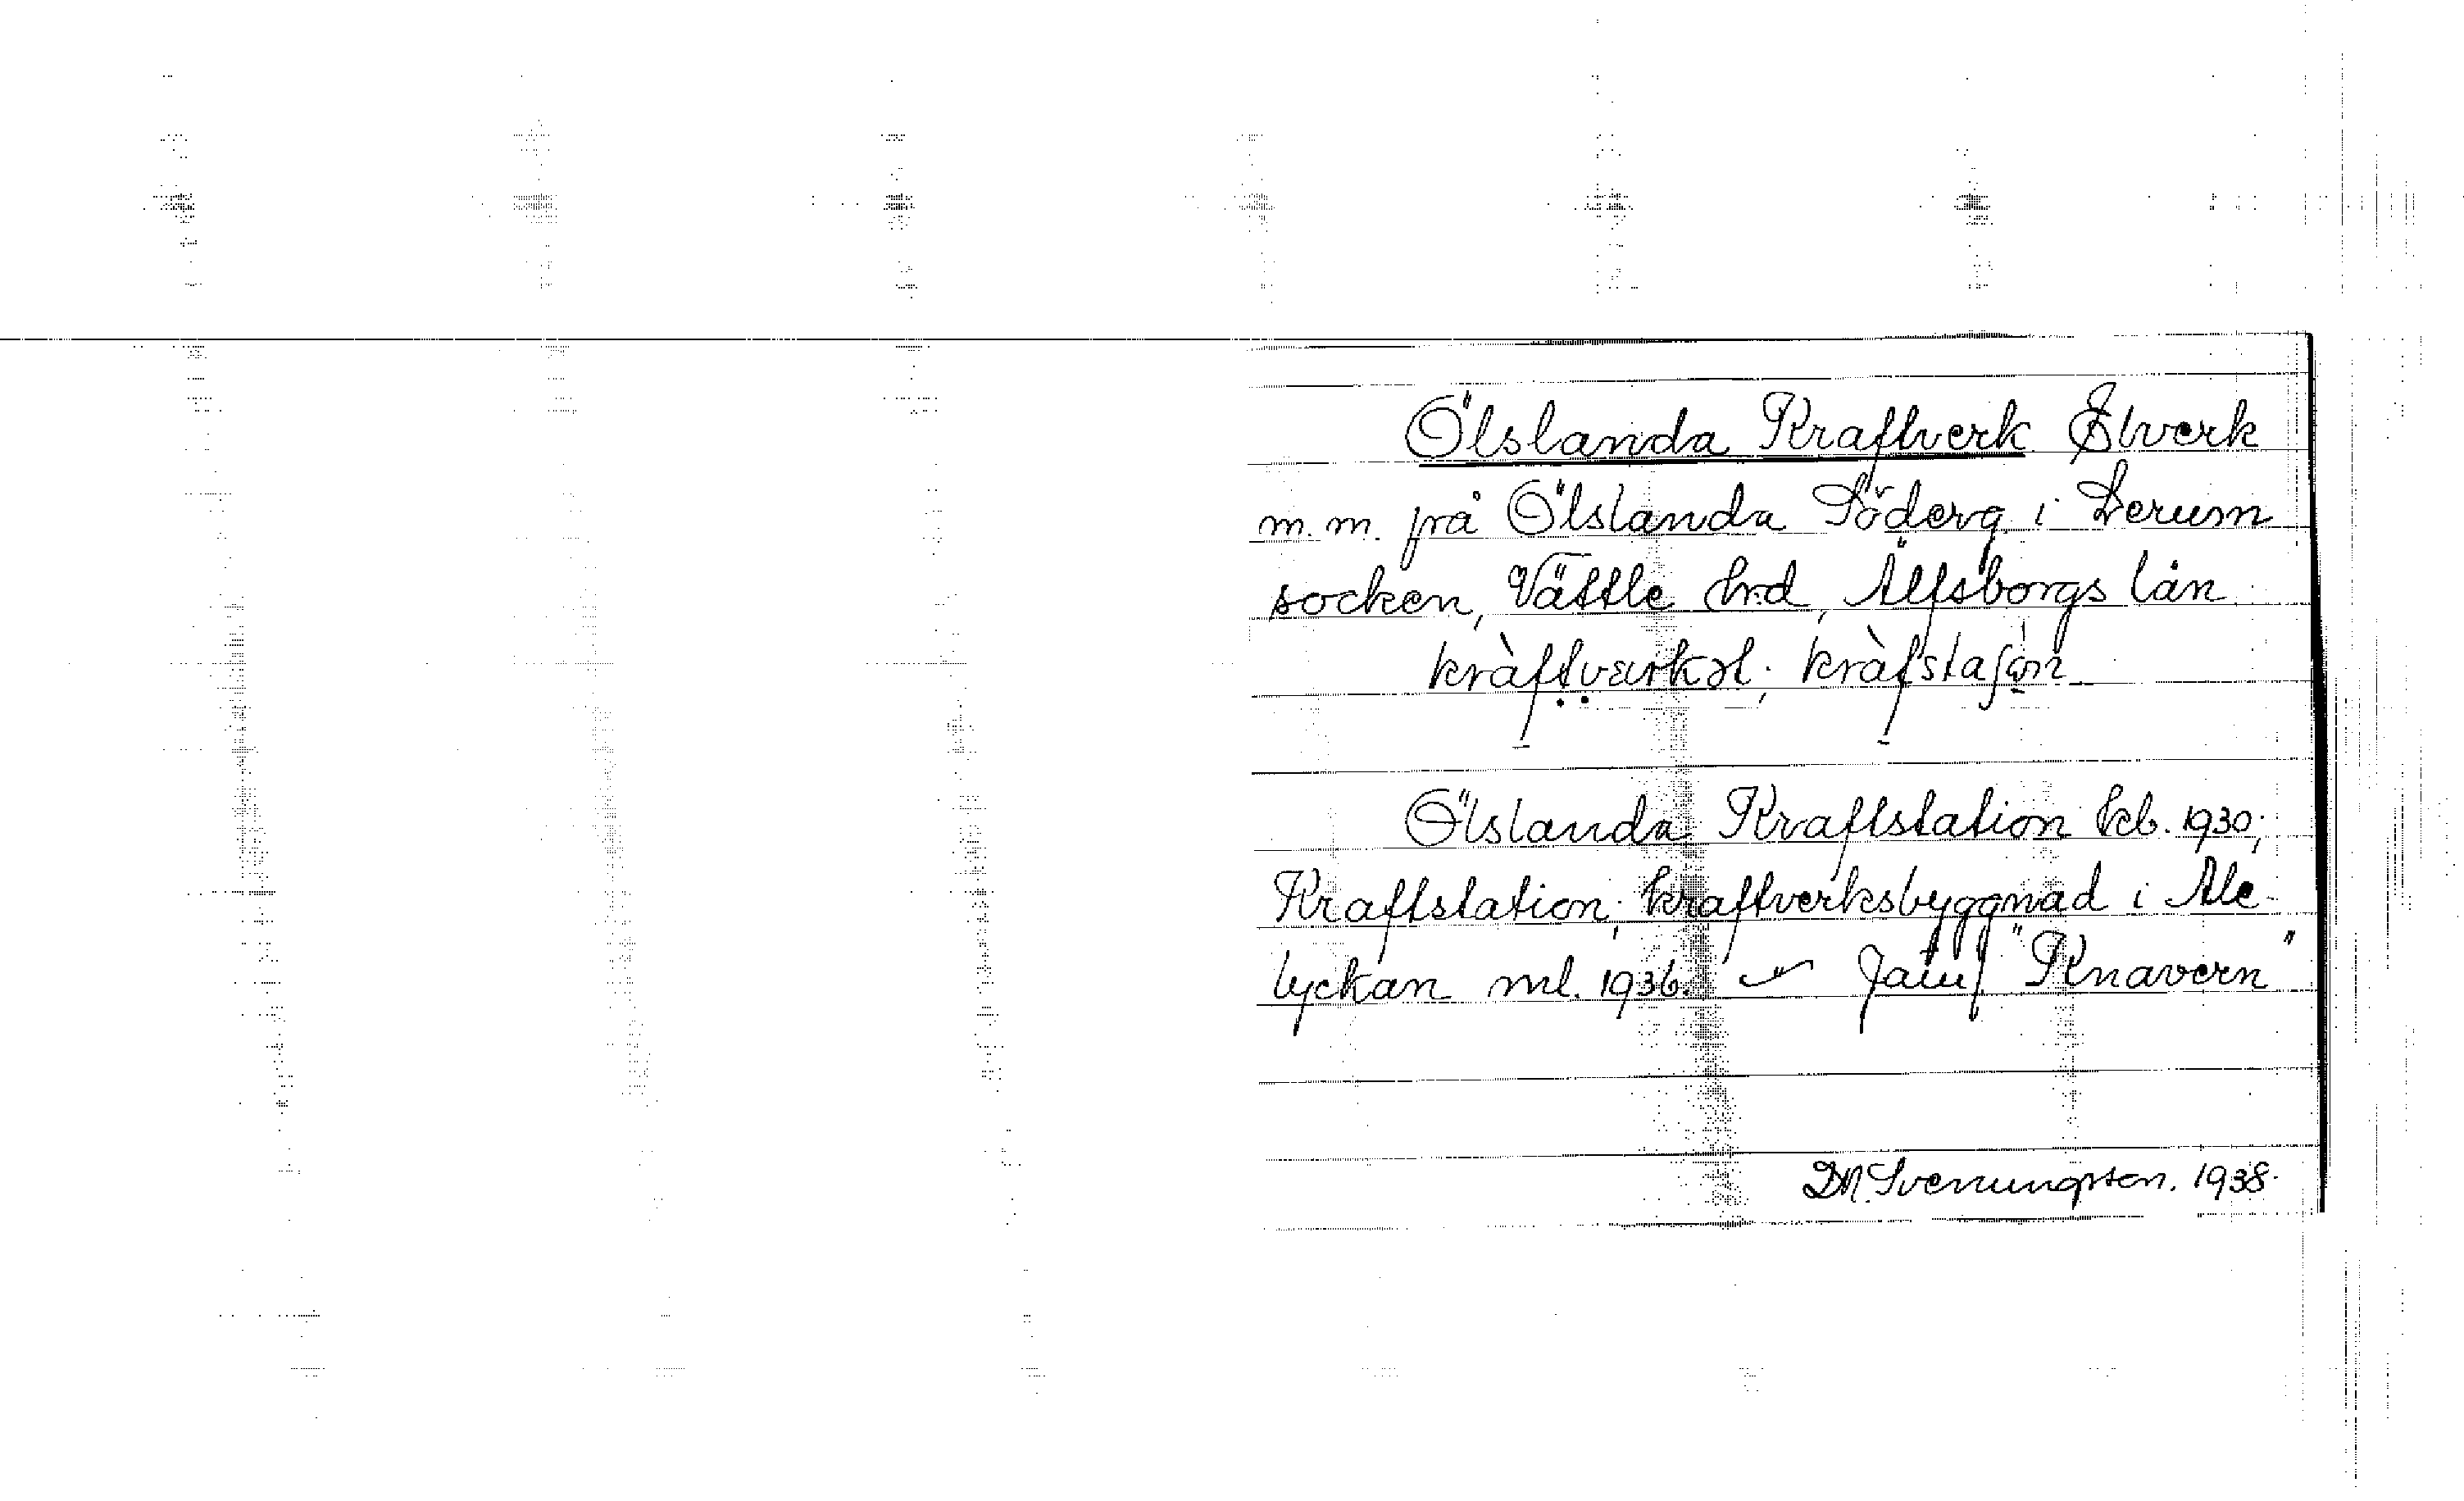 Ölslanda Kraftverk Elverk
m. m. på Ölslanda Söderg. i Lerum
socken, Vättle hrd, Älfsborgs län.
kràftvärkət; kràfstaʃɷn
Ölslanda Kraftstation kb. 1930;
Kraftstation; kraftverksbyggnad i Ale-
lyckan ml. 1936. Jämf "Knavern"
DN. Svenungsson. 1938.